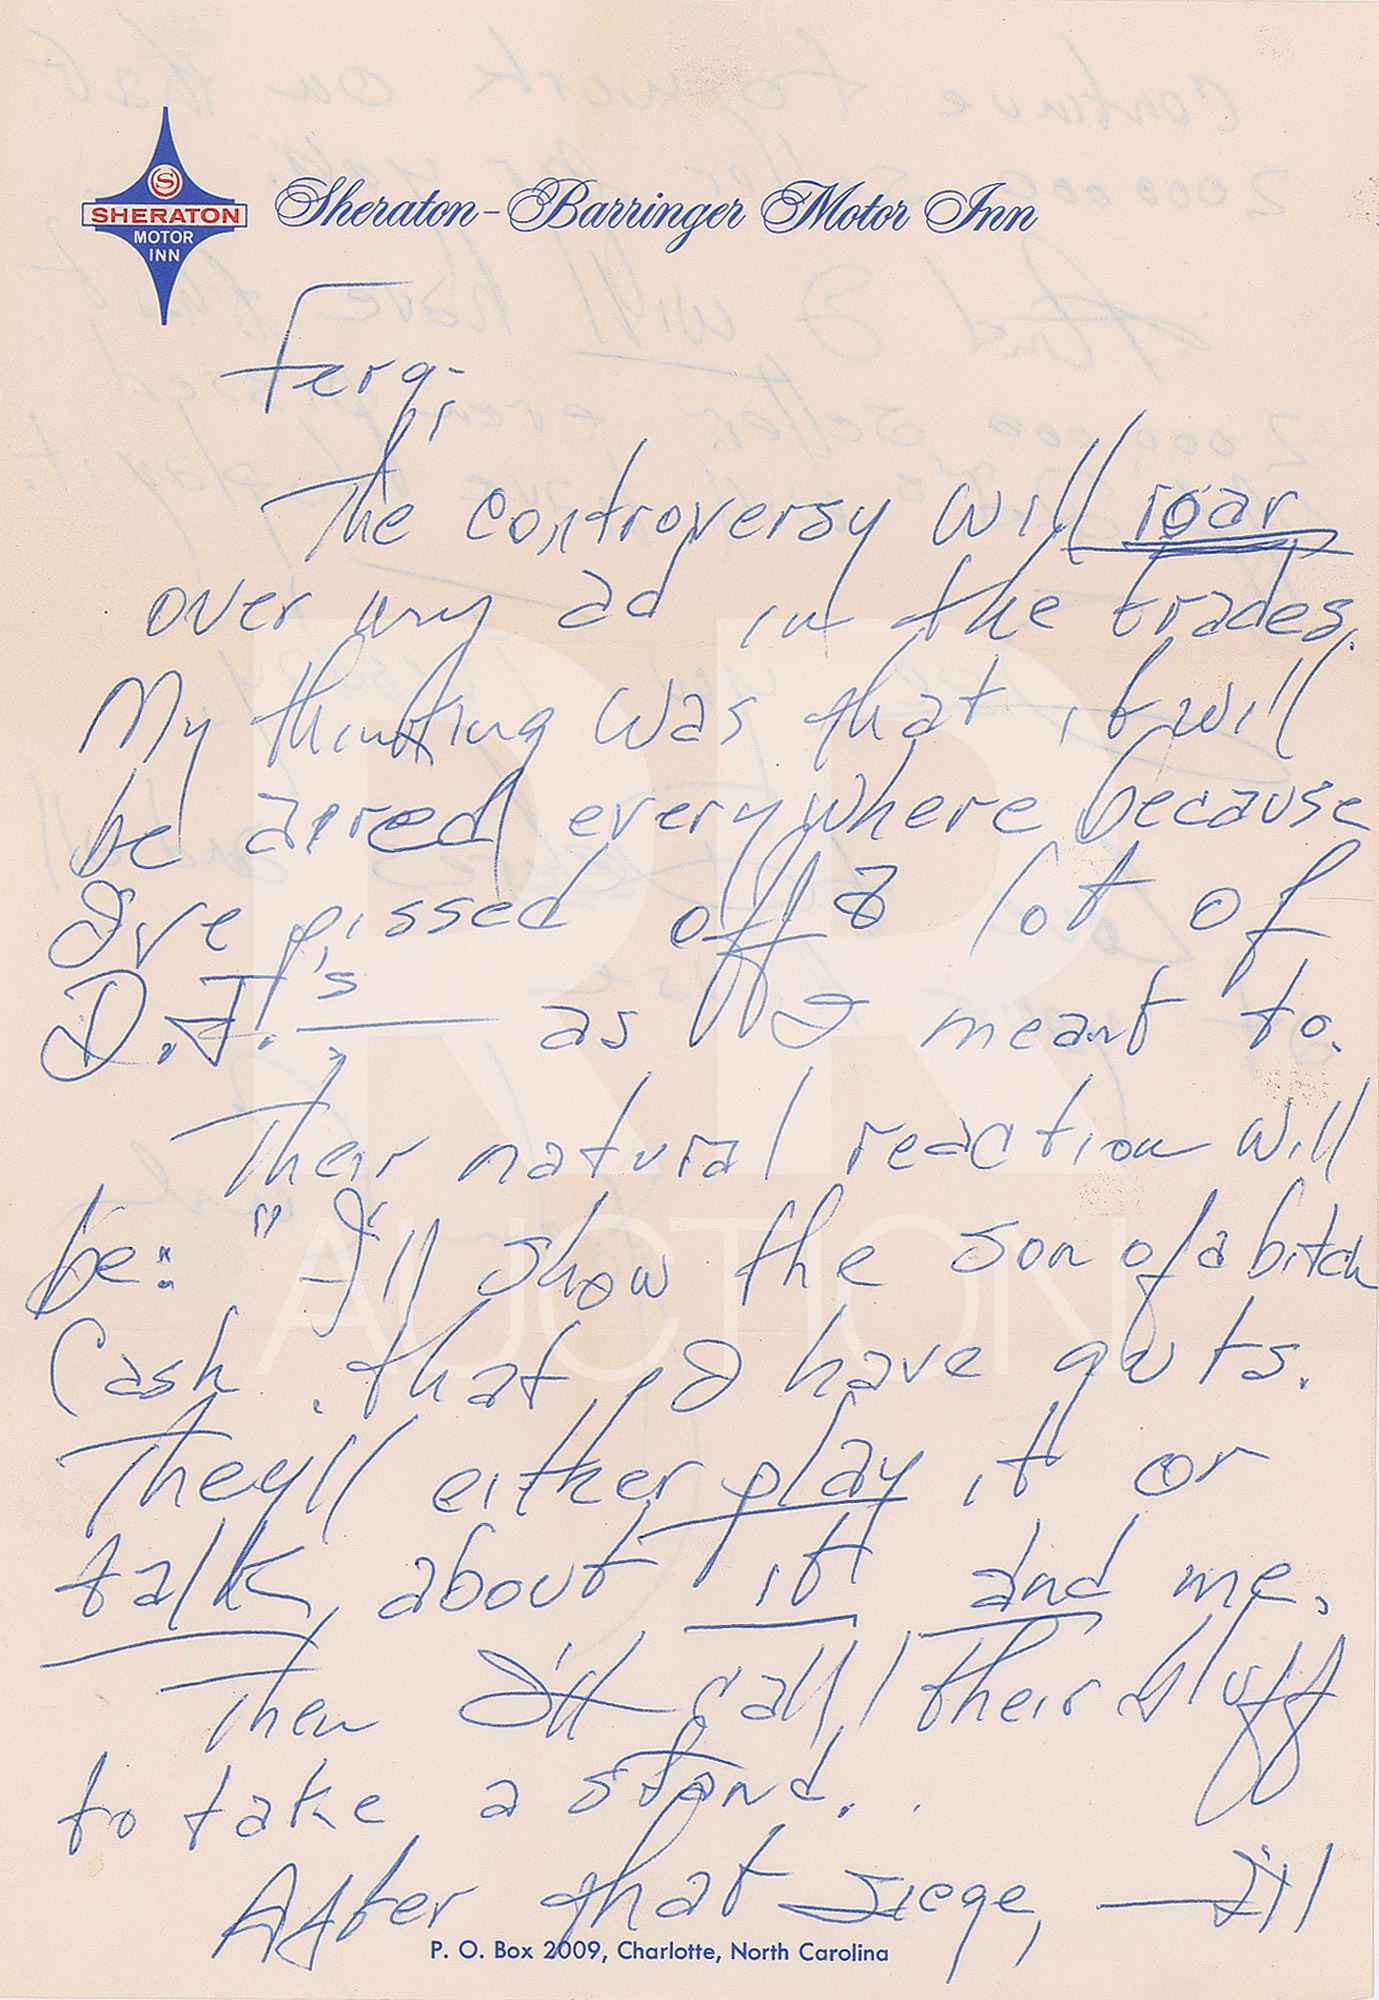 SHERATON
MOTOR
INN
Sheraton-Barringer Motor Inn
Ferg,
The controversy will roar
over my ad in the trades.
My thinking was that it will
be aired everywhere because
I've pissed off a lot of
D.J.'s — as I meant to.
Their natural reaction will
be: "I'll show the son of a bitch
Cash that I have guts.
They'll either play it or
talk about it and me.
Then I'll call their bluff
to take a stand.
After that siege, — I'll
P. O. Box 2009, Charlotte, North Carolina
RR
AUCTION